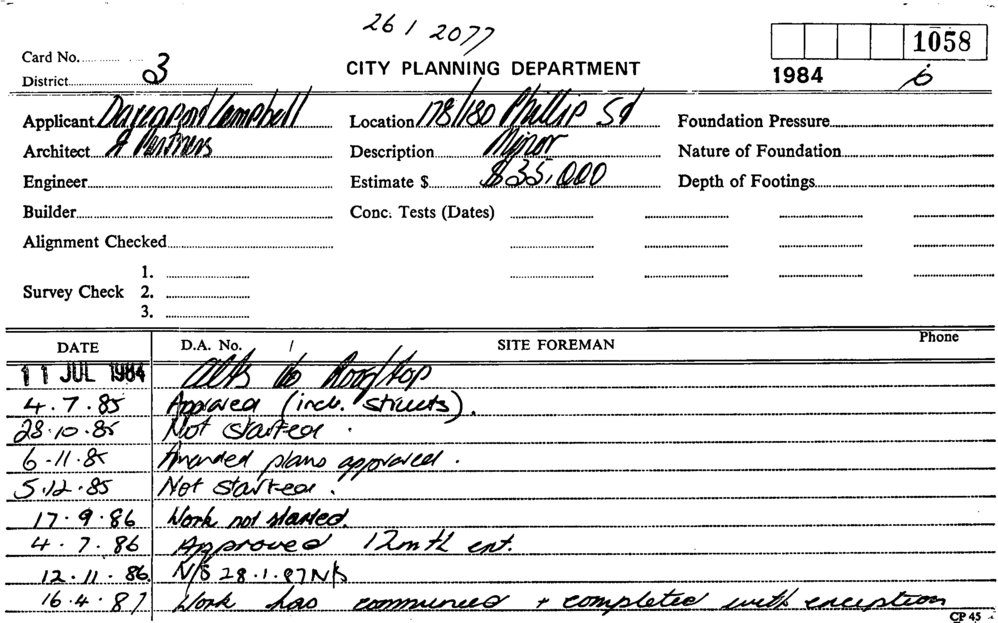 26 1 2077
Card No.
3
District
CITY PLANNING DEPARTMENT
1058
1984
6
Applicant Davenport Campbell
Architect & Partners
Engineer
Builder
Alignment Checked
Survey Check
1.
2.
3.
Location 178/180 Phillip St
Description Minor
Estimate $ $35,000
Conc. Tests (Dates)
Foundation Pressure
Nature of Foundation
Depth of Footings
DATE D.A. No. / SITE FOREMAN Phone
11 JUL 1984 Alts to Rooftop
4.7.85 Approved (incl. structs).
28.10.85 Not started.
6.11.85 Amended plans approved.
5.12.85 Not started.
17.9.86 Work not started.
4.7.86 Approved 12mth ext.
12.11.86. N/S 28.1.87 N/S
16.4.87 Work has commenced + completed with exception
CP 45